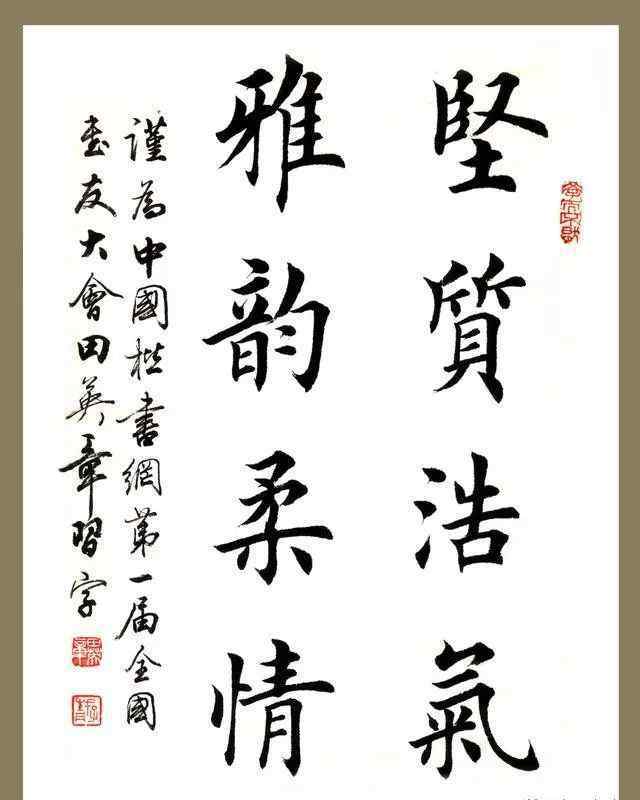 堅質浩氣
雅韵柔情
謹為中國楷書網第一届全國
書友大會田英章習字